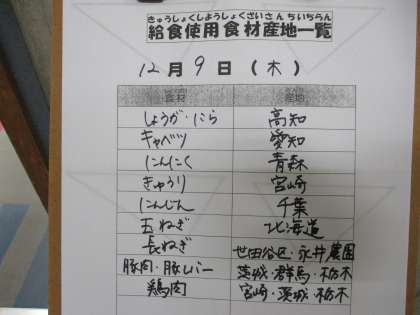 きゅうしょくしようしょくざいさんちいちらん
給食使用食材産地一覧
12月 9日 (木)
食材 産地
しょうが・にら 高知
キャベツ 愛知
にんにく 青森
きゅうり 宮崎
にんじん 千葉
玉ねぎ 北海道
長ねぎ 世田谷区・永井農園
豚肉・豚レバー 茨城・群馬・栃木
鶏肉 宮崎・茨城・栃木